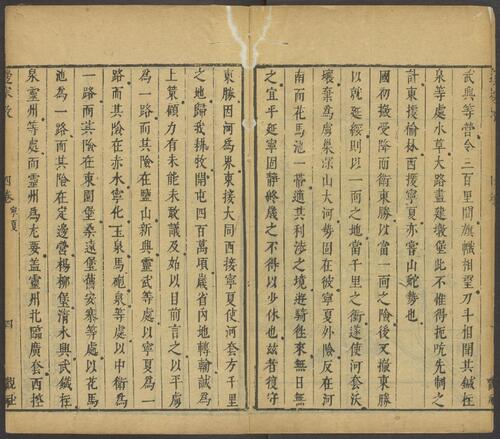 武興等營令三百里間旗幟相望刀斗相聞其鐵柱
泉等處水草大路盡建墩堡此不惟得扼吭先制之
計東援榆林西援寧夏亦常山蛇勢也
國初撤受降而衛東勝以當一面之險後又撤東勝
以就延綏則以一面之地當千里之衝遂使河套沃
壤棄為虜巢深山大河勢固在彼寧夏外險反在河
南而花馬池一帶適其利涉之境遊騎往來無日無
之宜乎延寧固靜終歲之不得以少休也玆者復守
東勝因河為界東接大同西接寧夏使河套方千里
之地歸我耕牧開屯四百萬頃歲省內地轉輸誠為
上策顧力有未能未敢議及始以目前言之以平虜
為一路而其險在鹽山新興靈武等處以寧夏為一
路而其險在赤水寧化玉泉馬砲泉等處以中衛為
一路而其險在東園堡桑遠堡舊安寨等處以花馬
池為一路而其險在定邊營楊柳堡清水興武鐵柱
泉靈州等處而靈州為尤要蓋靈州北臨廣套西控
四卷寧夏
四